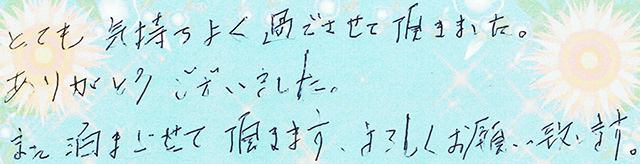 とても 気持ちよく 過ごさせて頂きました。
ありがとうございました。
また 泊まらせて 頂きます、よろしくお願い致します。